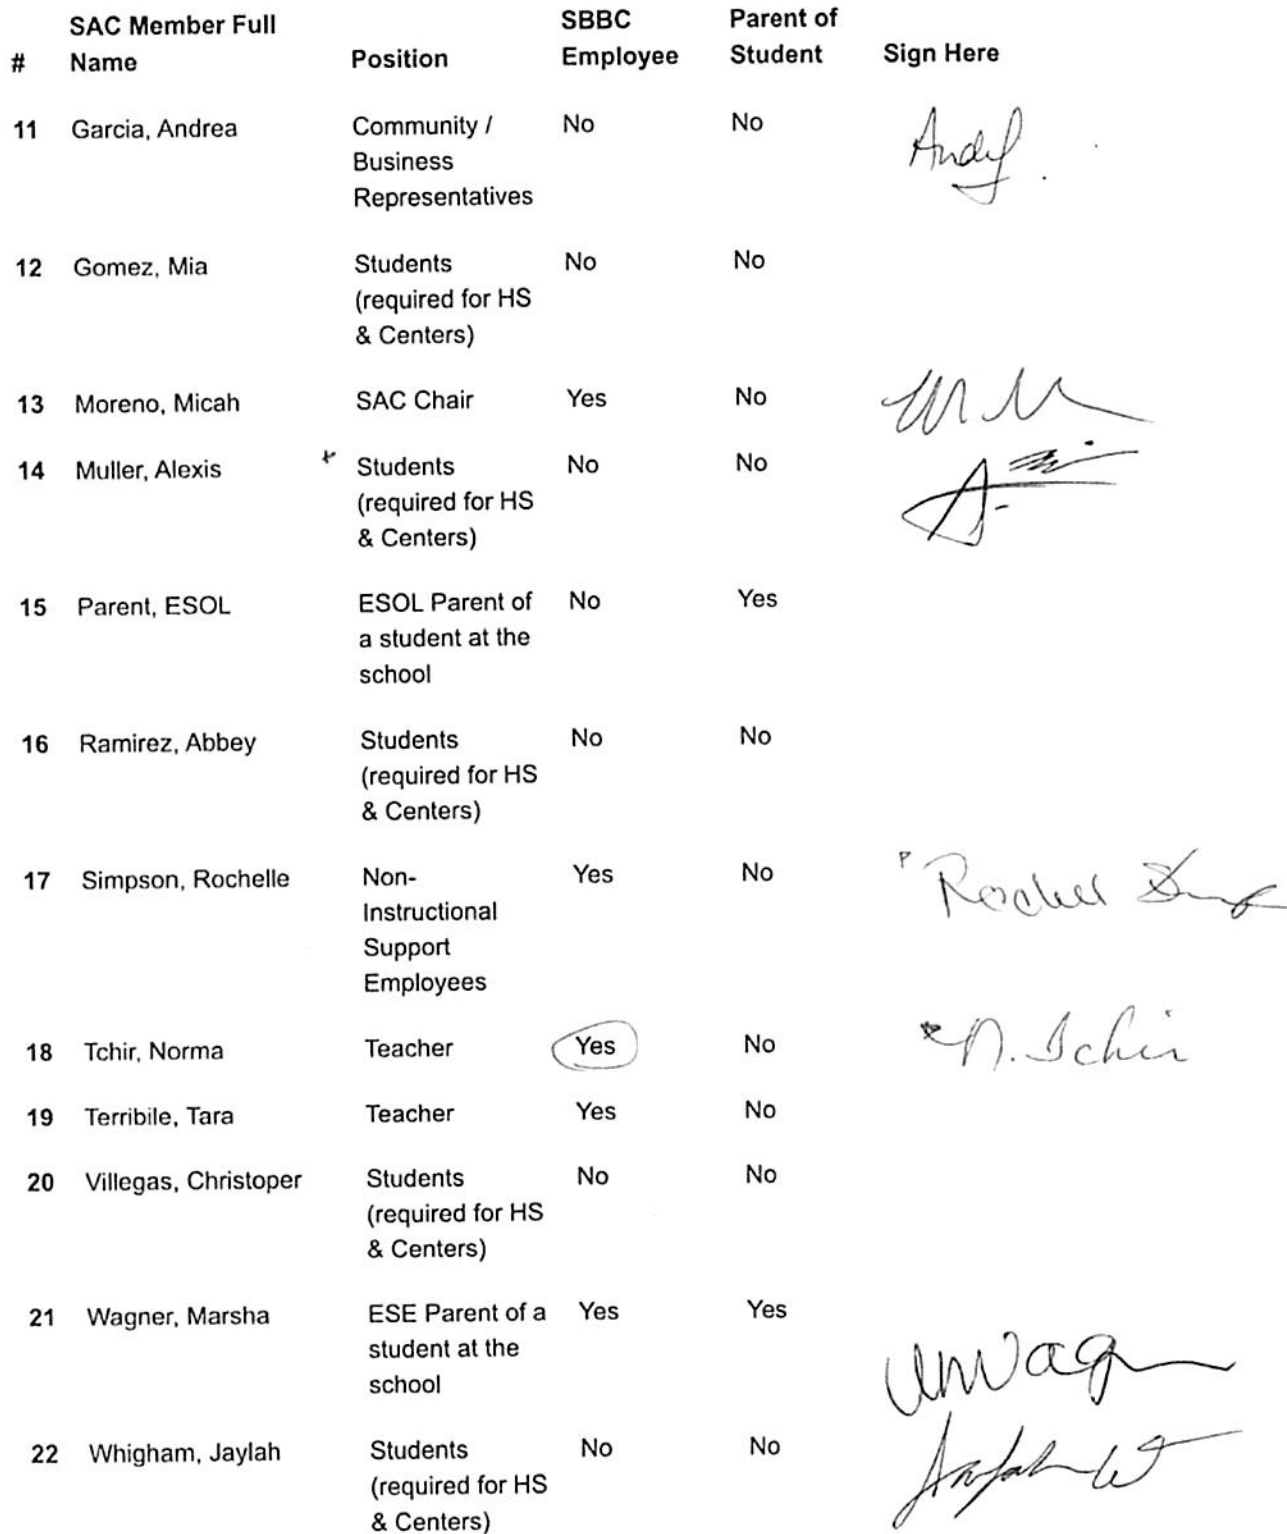 SAC Member Full SBBC Parent of
# Name Position Employee Student Sign Here
11 Garcia, Andrea Community / No No
Business
Representatives
12 Gomez, Mia Students No No
(required for HS
& Centers)
13 Moreno, Micah SAC Chair Yes No
14 Muller, Alexis Students No No
(required for HS
& Centers)
15 Parent, ESOL ESOL Parent of No Yes
a student at the
school
16 Ramirez, Abbey Students No No
(required for HS
& Centers)
17 Simpson, Rochelle Non- Yes No
Instructional
Support
Employees
18 Tchir, Norma Teacher Yes No N. Tchir
19 Terribile, Tara Teacher Yes No
20 Villegas, Christoper Students No No
(required for HS
& Centers)
21 Wagner, Marsha ESE Parent of a Yes Yes
student at the
school
22 Whigham, Jaylah Students No No
(required for HS
& Centers)